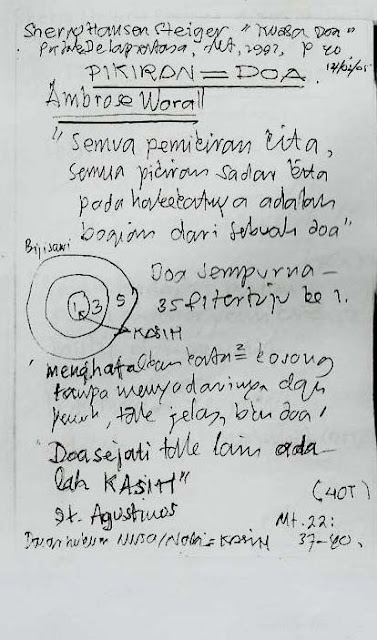 Sherry Hansen Steiger "Kuasa Doa"
Delapratasa, Jkt, 2002, p 40
12/02/05
PIKIRAN = DOA
Ambrose Worall
"Semua pemikiran kita,
semua pikiran sadar kita
pada hakekatnya adalah
bagian dari sebuah doa"
Biji sawi
Doa sempurna –
1 3 5
3 5 ke 1.
KASIH
menghafalkan kata² kosong
tanpa menyadarinya dan
tdk jelas, bkn doa!
"Doa sejati tdk lain ada-
lah KASIH"
St. Agustinus
(40T)
Mt. 22:
37-40.
= KASIH